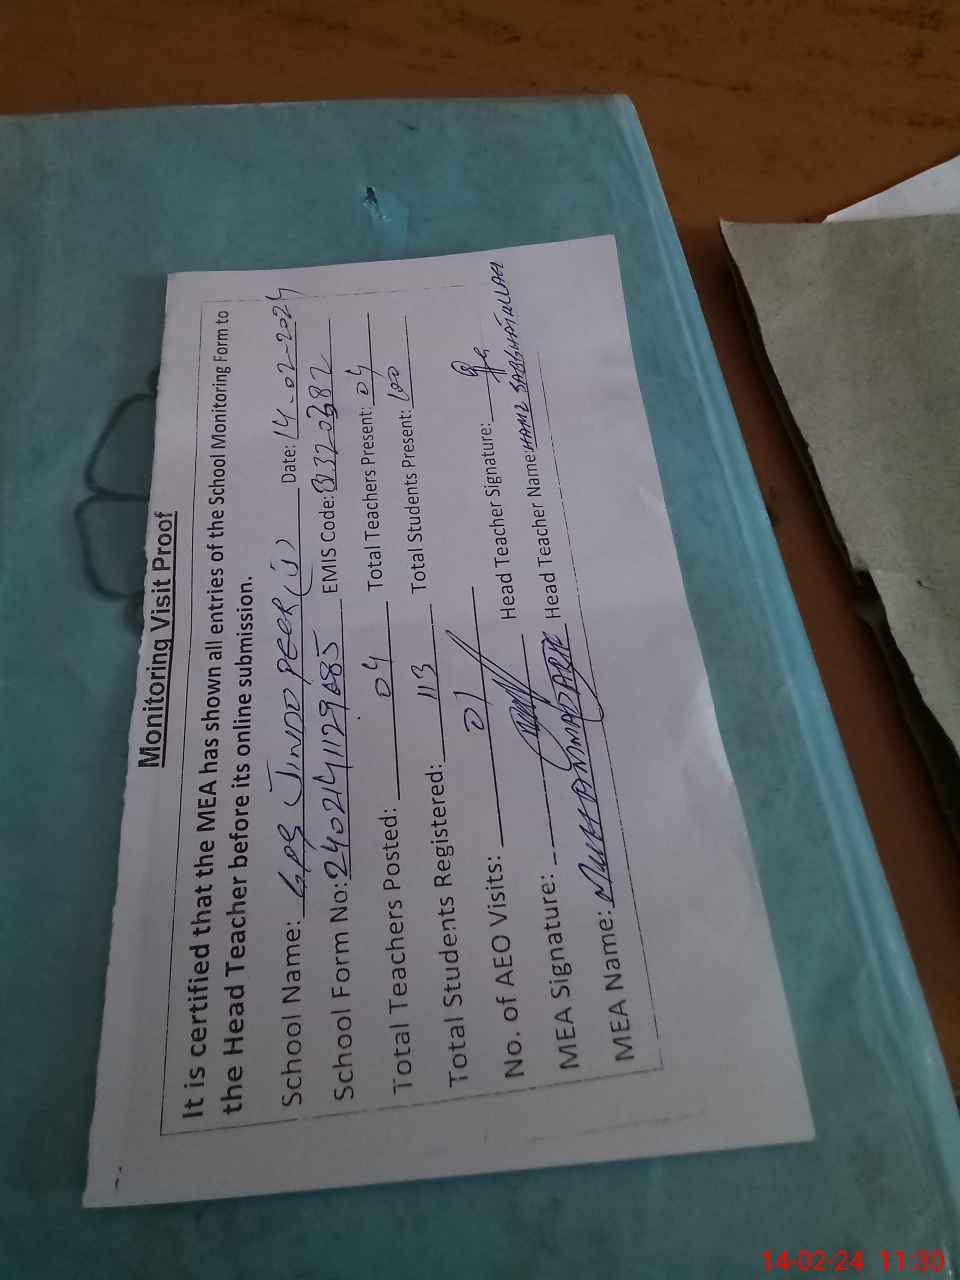 Monitoring Visit Proof
It is certified that the MEA has shown all entries of the School Monitoring Form to
the Head Teacher before its online submission.
School Name: GPS JINDO PEER (i) Date: 14-02-2024
School Form No: 2402141129685 EMIS Code: 31320382
Total Teachers Posted: 04 Total Teachers Present: 04
Total Students Registered: 113 Total Students Present: 100
No. of AEO Visits: 01
MEA Signature: Head Teacher Signature:
MEA Name: MUHAMMAD Head Teacher Name:
14-02-24 11:30